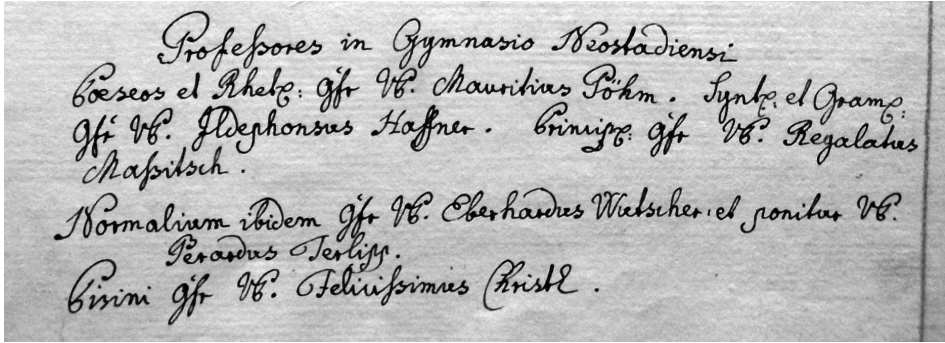 Professores in Gymnasio Neostadiensi
Poëseos et Rhetx: Vb. Mauritius Pöhm. Syntx: et Gramx:
Vb. Ildephonsus Haffner. Principx: Vb. Regalatus
Maßitsch.
Normalium ibidem Vb. Eberhardus Wutscher, et ponitur Vb.
Perardus Terlipp.
Pisini Vb. Felicissimus Christl.